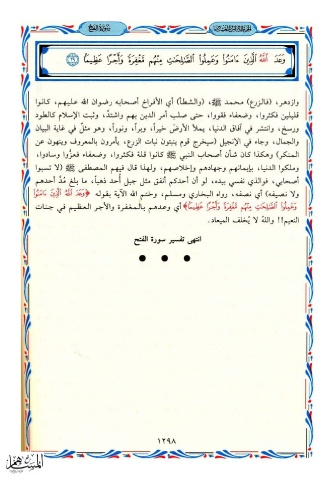 سورة الفتح
وَعَدَ اللَّهُ الَّذِينَ ءَامَنُوا وَعَمِلُوا الصَّالِحَاتِ مِنْهُم مَّغْفِرَةً وَأَجْرًا عَظِيمًا ﴿٢٩﴾
وازدهر، (فالزرع) محمد ﷺ، (والشطأ) أي الأفراخ أصحابه رضوان الله عليهم، كانوا
قليلين فكثروا، وضعفاء فقووا، حتى صلب أمر الدين بهم واشتدَّ، وثبت الإسلام كالطود
ورسخ، وانتشر في آفاق الدنيا، يملأ الأرض خيراً، وبراً، ونوراً، وهو مثلٌ في غاية البيان
والجمال، وجاء في الإنجيل (سيخرج قوم ينبتون نبات الزرع، يأمرون بالمعروف وينهون عن
المنكر) وهكذا كان شأن أصحاب النبي ﷺ كانوا قلة فكثروا، وضعفاء فعزُّوا وسادوا،
وملكوا الدنيا، بإيمانهم وجهادهم وإخلاصهم، ولهذا قال فيهم المصطفى ﷺ (لا تسبوا
أصحابي، فوالذي نفسي بيده، لو أن أحدكم أنفق مثل جبل أُحد ذهباً، ما بلغ مُدَّ أحدهم
ولا نصيفه) أي نصفه، رواه البخاري ومسلم، وختم الله الآية بقوله ﴿وَعَدَ اللَّهُ الَّذِينَ ءَامَنُوا
وَعَمِلُوا الصَّالِحَاتِ مِنْهُم مَّغْفِرَةً وَأَجْرًا عَظِيمًا﴾ أي وعدهم بالمغفرة والأجر العظيم في جنات
النعيم!! واللهُ لا يُخلف الميعاد.
انتهى تفسير سورة الفتح
١٢٩٨